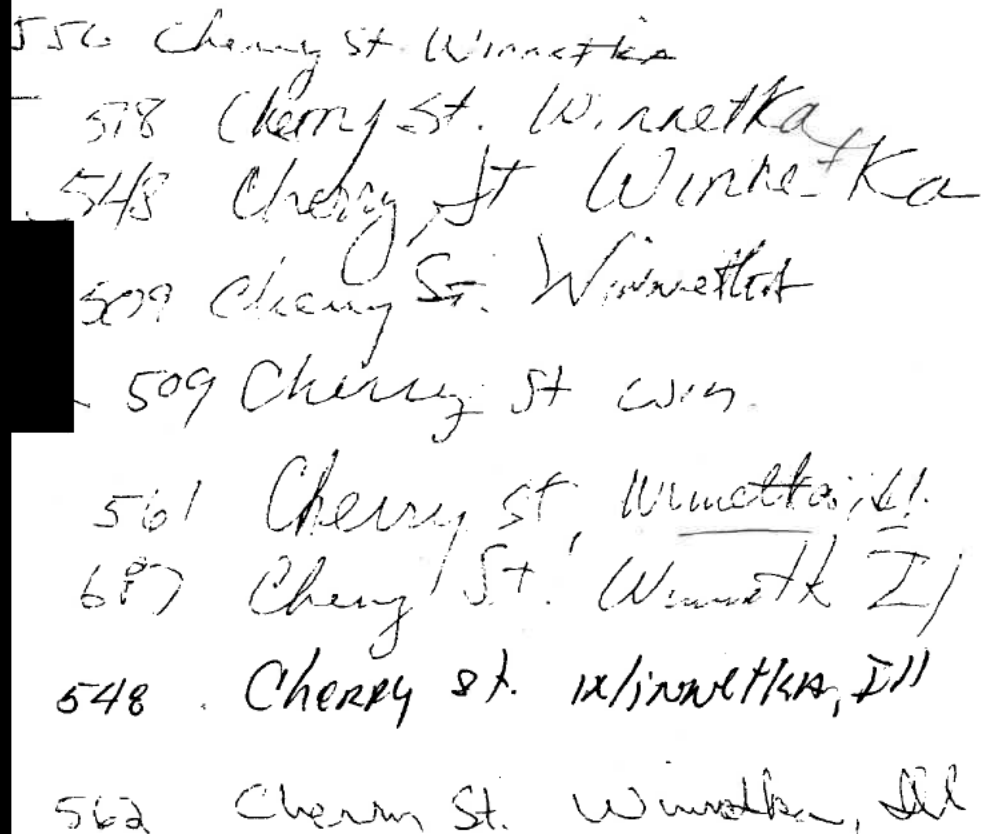 556 Cherry St. Winnetka
578 Cherry St. Winnetka
548 Cherry St Winnetka
509 Cherry St. Winnetka
509 Cherry St Win.
561 Cherry St, Winnetka, Il.
687 Cherry St. Winnetk Il
548 . Cherry St. Winnetka, Ill
562 Cherry St. Winnetka, Ill